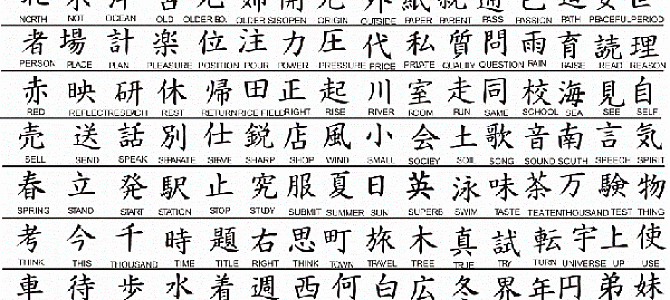 NORTH NOT OCEAN OLD OLDER BO. OLDER SIS OPEN ORIGIN OUTSIDE PAPER PARENT PASS PASSION PATH PEACEFUL PERIOD
者 場 計 楽 位 注 力 圧 代 私 質 問 雨 育 読 理
PERSON PLACE PLAN PLEASURE POSITION POUR POWER PRESSURE PRICE PRIVATE QUALITY QUESTION RAIN RAISE READ REASON
赤 映 研 休 帰 田 正 起 川 室 走 同 校 海 見 自
RED REFLECT RESEACH REST RETURN RICE FIELD RIGHT RISE RIVER ROOM RUN SAME SCHOOL SEA SEE SELF
売 送 話 別 仕 鋭 店 風 小 会 土 歌 音 南 言 気
SELL SEND SPEAK SEPARATE SERVE SHARP SHOP WIND SMALL SOCIETY SOIL SONG SOUND SOUTH SPEECH SPIRIT
春 立 発 駅 止 究 服 夏 日 英 泳 味 茶 万 験 物
SPRING STAND START STATION STOP STUDY SUBMIT SUMMER SUN SUPERB SWIM TASTE TEA TENTHOUSAND TEST THING
考 今 千 時 題 右 思 町 旅 木 真 試 転 宇 上 使
THINK THIS THOUSAND TIME TITLE RIGHT THINK TOWN TRAVEL TREE TRUE TRY TURN UNIVERSE UP USE
車 待 歩 水 着 週 西 何 白 広 冬 界 年 円 弟 妹